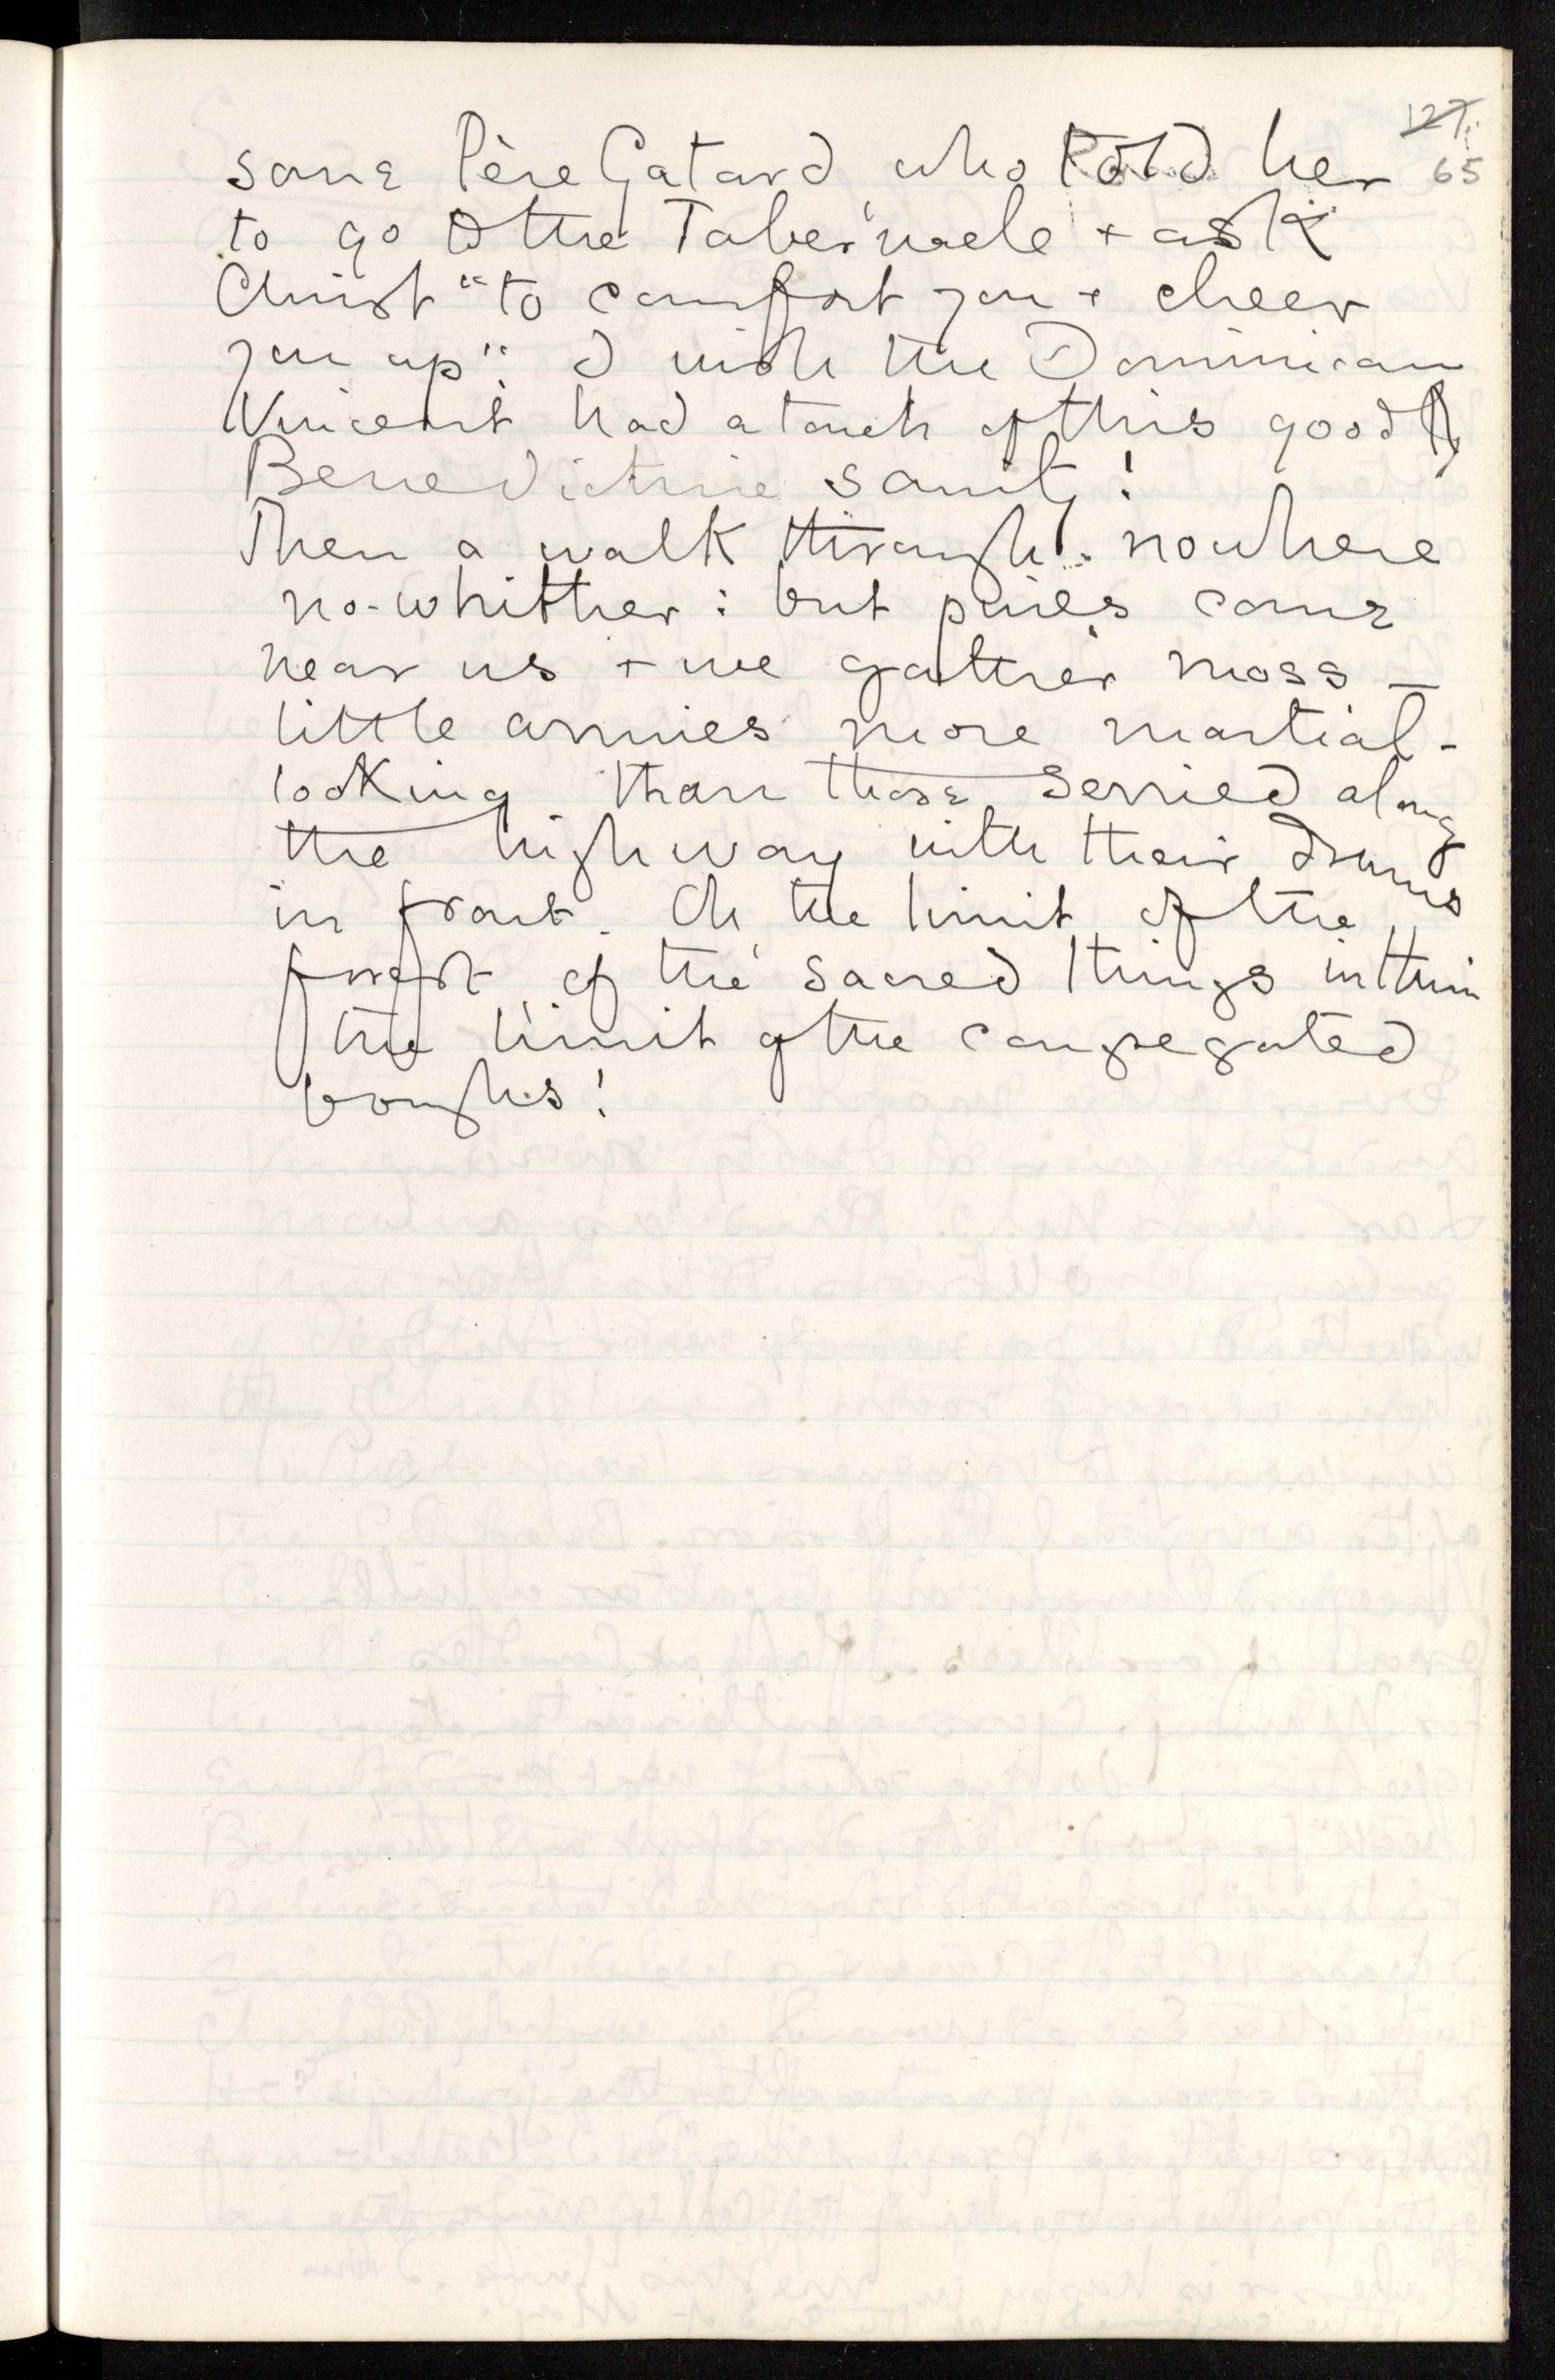 127.
65
some Père Gatard who told her
to go to the Tabernacle + ask
Christ "to comfort you + cheer
you up". I wish the Dominican
Vincent had a touch of this good
Benedictine sanity!
Then a walk through nowhere
no-whither : but pines come
near us + we gather moss —
little armies more martial-
looking than those serried along
the highway with their drums
in front. Oh the limit of the
forest of the sacred things within
the limit of the congregated
boughs!